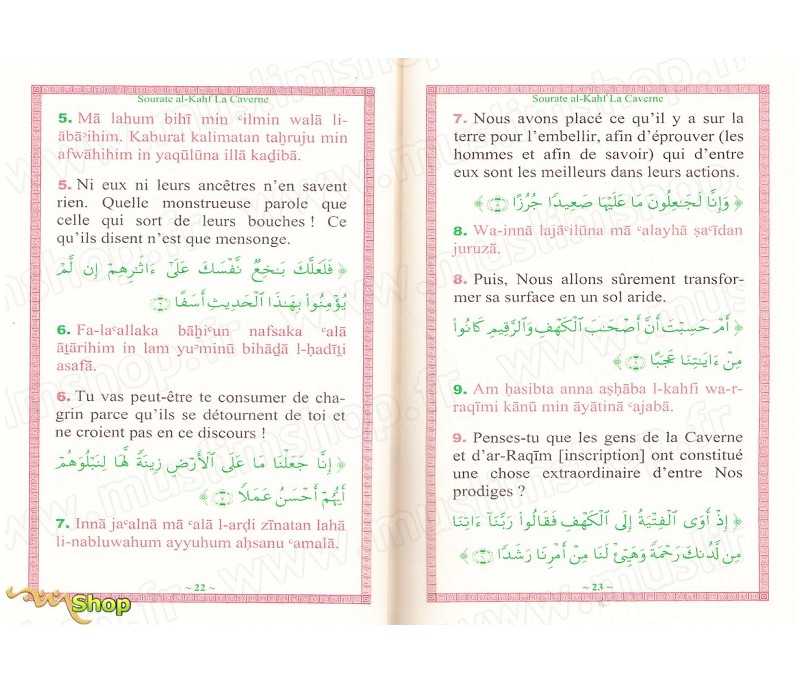 Sourate al-Kahf La Caverne
5. Mā lahum bihī min ʿilmin walā li-
ābāʾihim. Kaburat kalimatan taḥruju min
afwāhihim in yaqūlūna illā kaḏibā.
5. Ni eux ni leurs ancêtres n’en savent
rien. Quelle monstrueuse parole que
celle qui sort de leurs bouches ! Ce
qu’ils disent n’est que mensonge.
﴿ فَلَعَلَّكَ بَـٰخِعٌ نَّفْسَكَ عَلَىٰٓ ءَاثَـٰرِهِمْ إِن لَّمْ
يُؤْمِنُوا۟ بِهَـٰذَا ٱلْحَدِيثِ أَسَفًا ۝ ﴾
6. Fa-laʿallaka bāḫiʿun nafsaka ʿalā
āṯārihim in lam yuʾminū bihāḏā l-ḥadīṯi
asafā.
6. Tu vas peut-être te consumer de cha-
grin parce qu’ils se détournent de toi et
ne croient pas en ce discours !
﴿ إِنَّا جَعَلْنَا مَا عَلَى ٱلْأَرْضِ زِينَةً لَّهَا لِنَبْلُوَهُمْ
أَيُّهُمْ أَحْسَنُ عَمَلًا ۝ ﴾
7. Innā jaʿalnā mā ʿalā l-arḍi zīnatan lahā
li-nabluwahum ayyuhum aḥsanu ʿamalā.
~ 22 ~
Sourate al-Kahf La Caverne
7. Nous avons placé ce qu’il y a sur la
terre pour l’embellir, afin d’éprouver (les
hommes et afin de savoir) qui d’entre
eux sont les meilleurs dans leurs actions.
﴿ وَإِنَّا لَجَـٰعِلُونَ مَا عَلَيْهَا صَعِيدًا جُرُزًا ۝ ﴾
8. Wa-innā lajāʿilūna mā ʿalayhā ṣaʿīdan
juruzā.
8. Puis, Nous allons sûrement transfor-
mer sa surface en un sol aride.
﴿ أَمْ حَسِبْتَ أَنَّ أَصْحَـٰبَ ٱلْكَهْفِ وَٱلرَّقِيمِ كَانُوا۟
مِنْ ءَايَـٰتِنَا عَجَبًا ۝ ﴾
9. Am ḥasibta anna aṣḥāba l-kahfi wa-r-
raqīmi kānū min āyātinā ʿajabā.
9. Penses-tu que les gens de la Caverne
et d’ar-Raqīm [inscription] ont constitué
une chose extraordinaire d’entre Nos
prodiges ?
﴿ إِذْ أَوَى ٱلْفِتْيَةُ إِلَى ٱلْكَهْفِ فَقَالُوا۟ رَبَّنَآ ءَاتِنَا
مِن لَّدُنكَ رَحْمَةً وَهَيِّئْ لَنَا مِنْ أَمْرِنَا رَشَدًا ۝ ﴾
~ 23 ~
Shop
www.muslimshop.fr